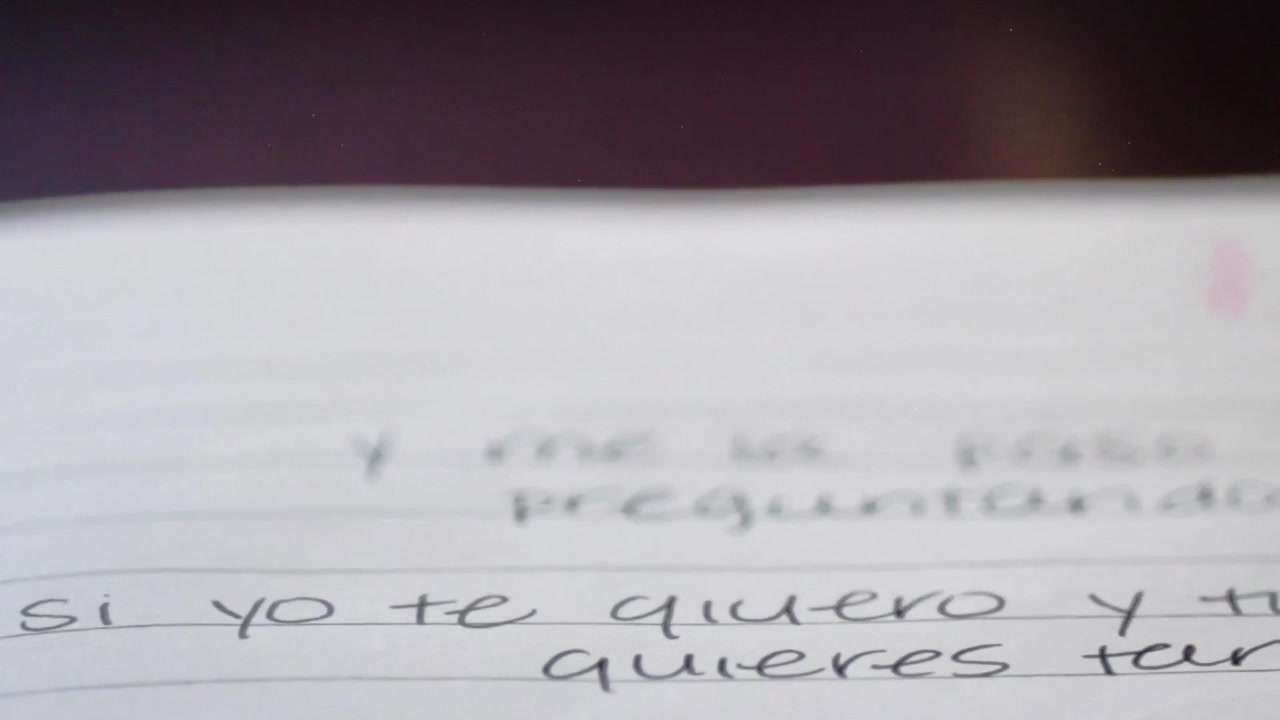 y me la paso
preguntando
si yo te quiero y
quieres